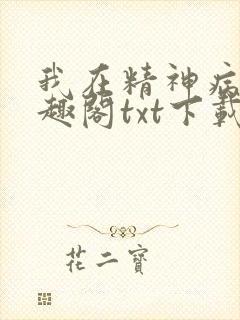 我在精神病
趣阁txt下载
花二宝